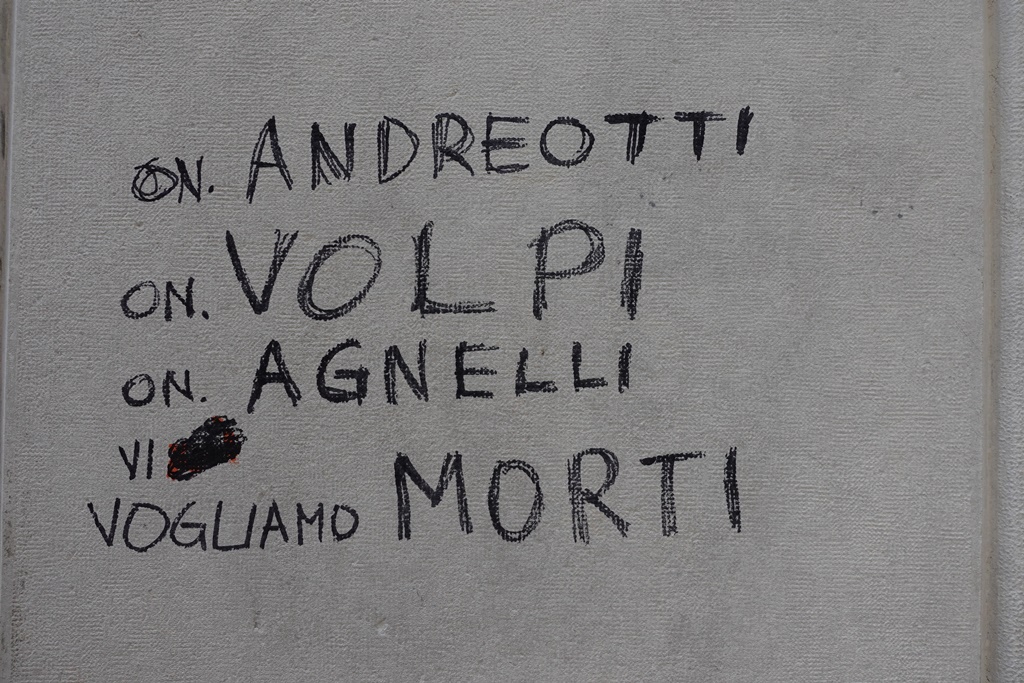 ON. ANDREOTTI
ON. VOLPI
ON. AGNELLI
VI
VOGLIAMO MORTI